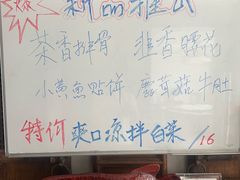 新品推出
茶香排骨 韭香腰花
小黄鱼贴饼 蘑茸菇牛肚
特价 爽口凉拌白菜 /16